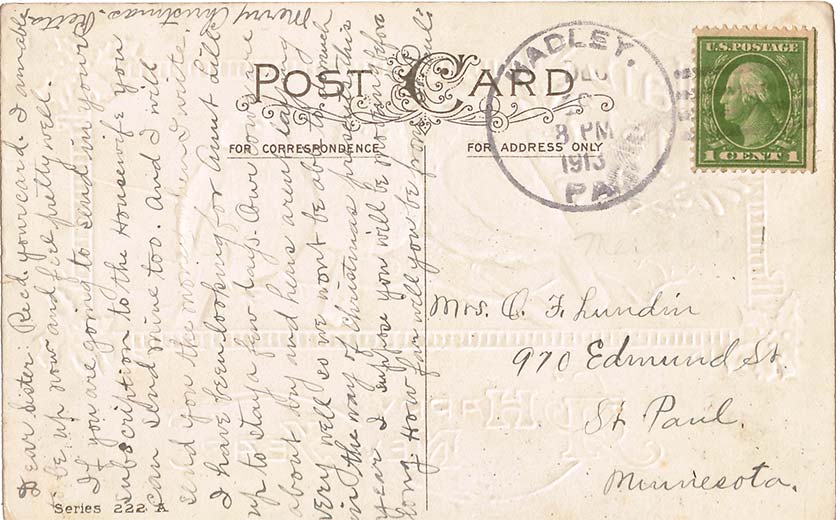 POST CARD
FOR CORRESPONDENCE
FOR ADDRESS ONLY
HADLEY.
DEC
8 PM
1913
PA
U.S. POSTAGE
1 CENT 1
Mrs. O. F. Lundin
970 Edmund St.
St Paul.
Minnesota.
Dear Sister: Rec'd your card. I am able
to be up now and feel pretty well.
If you are going to send in your
subscription to the Housewife you
can send mine too. And I will
send you the money when I write.
I have been looking for Aunt Lill
up to stay a few days. Our cows are
about dry and hens aren't laying
very well so we wont be able to do much
in the way of Christmas presents this
year. I suppose you will be moving before
long. How far will you be from
Merry Christmas.
Series 222 A